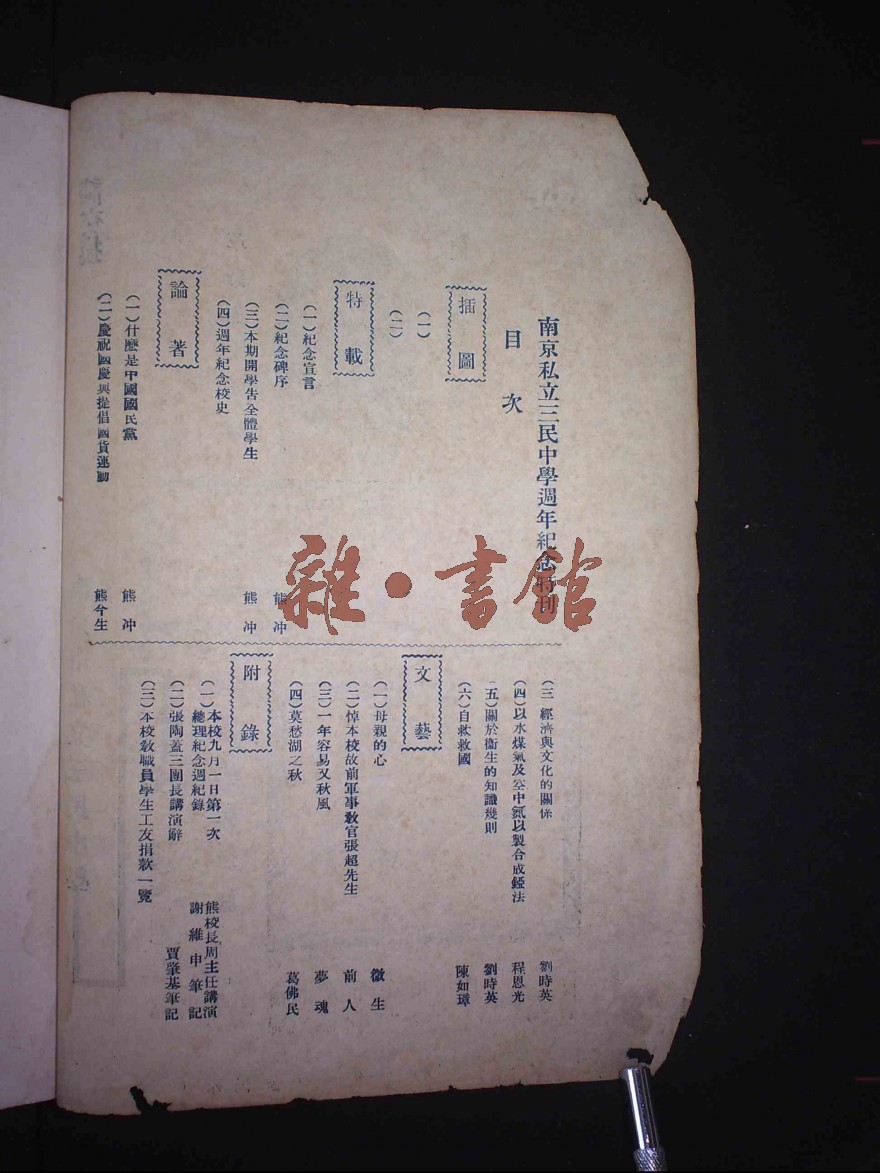 南京私立三民中學週年紀念特刊
目次
插圖
(一)
(二)
特載
(一)紀念宣言
(二)紀念碑序 熊冲
(三)本期開學告全體學生 熊冲
(四)週年紀念校史
論著
(一)什麽是中國國民黨 熊冲
(二)慶祝國慶與提倡國貨運動 熊今生
(三)經濟與文化的關係 劉時英
(四)以水煤氣及空中氮以製合成錏法 程恩光
(五)關於衞生的知識幾則 劉時英
(六)自救救國 陳如璋
文藝
(一)母親的心 微生
(二)悼本校故前軍事敎官張超先生 前人
(三)一年容易又秋風 夢魂
(四)莫愁湖之秋 葛佛民
附錄
(一)本校九月一日第一次
總理紀念週紀錄 熊校長周主任講演
謝維申筆記
(二)張陶蓋三團長講演辭 賈肇基筆記
(三)本校敎職員學生工友捐欵一覽
雜·書館